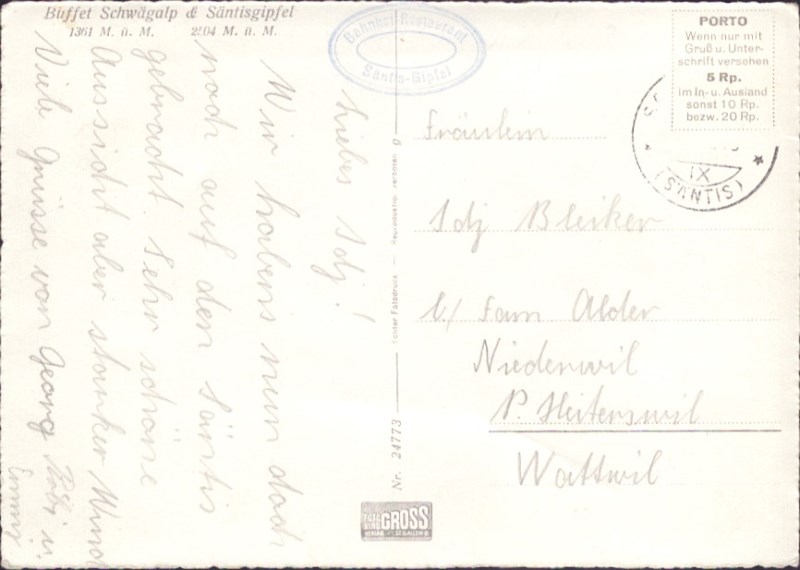 Buffet Schwägalp & Säntisgipfel
1361 M. ü. M. 2504 M. ü. M.
Bahnhof-Restaurant
Säntis-Gipfel
PORTO
Wenn nur mit
Gruß u. Unter-
schrift versehen
5 Rp.
im In- u. Ausland
sonst 10 Rp.
bezw. 20 Rp.
IX
(SÄNTIS)
Liebes Idj!
Wir habens nun doch
noch auf den Säntis
gebracht. Sehr schöne
Aussicht aber starker Wind
Viele Grüsse von Georg u.
Emmi
Fräulein
Idj Bleiker
b/ Fam Alder
Niederwil
P. Heiterswil
Wattwil
Echter Fotodruck — Reproduktion verboten
Nr. 24773
FOTO
GROSS
ST. GALLEN